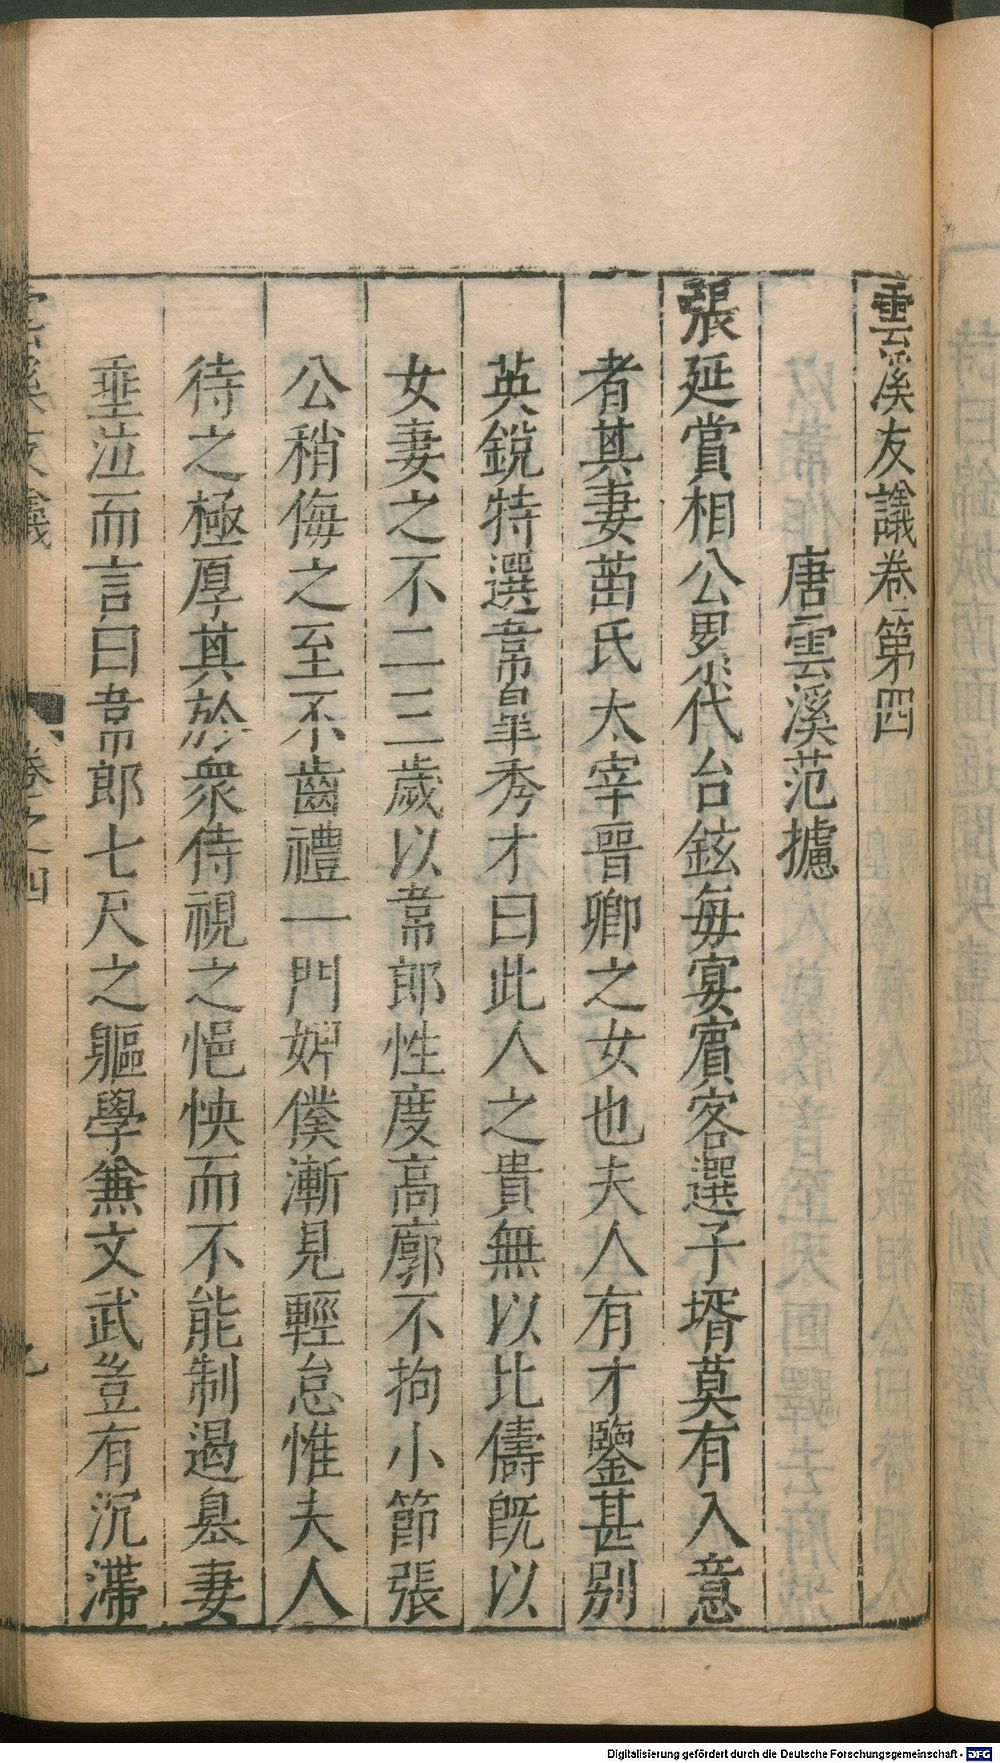 雲溪友議卷第四
唐雲溪范攄
張延賞相公累代台鉉每宴賓客選子壻莫有入意
者其妻苗氏太宰晉卿之女也夫人有才鑒甚別
英銳特選韋皐秀才曰此人之貴無以比儔旣以
女妻之不二三歲以韋郎性度高廓不拘小節張
公稍侮之至不齒禮一門婢僕漸見輕怠惟夫人
待之極厚其於衆侍視之悒怏而不能制遏其妻
垂泣而言曰韋郎七尺之軀學兼文武豈有沉滯
雲溪友議 卷之四
Digitalisierung gefördert durch die Deutsche Forschungsgemeinschaft - DFG